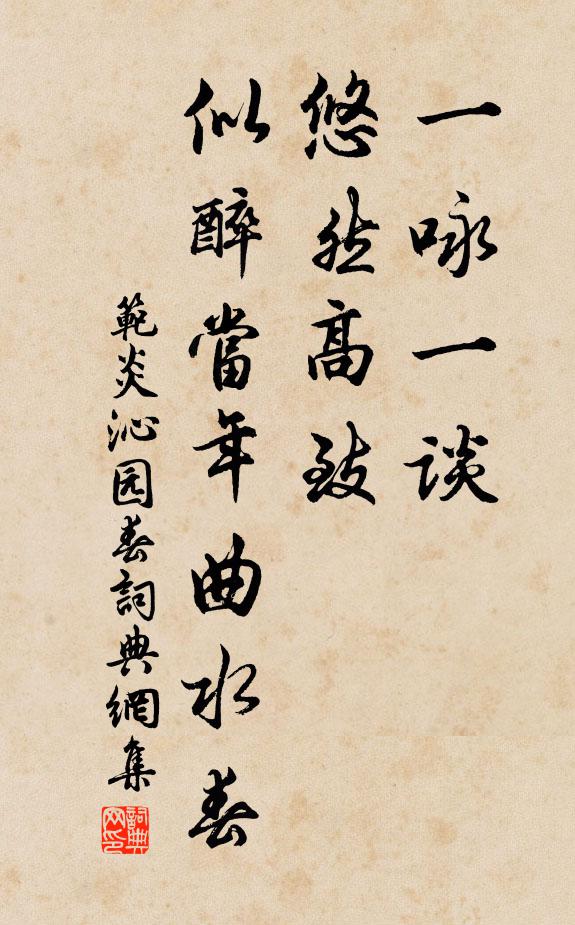 一咏一谈
悠然高致
似醉當年曲水春
範炎沁园春詞典網集
詞典网印